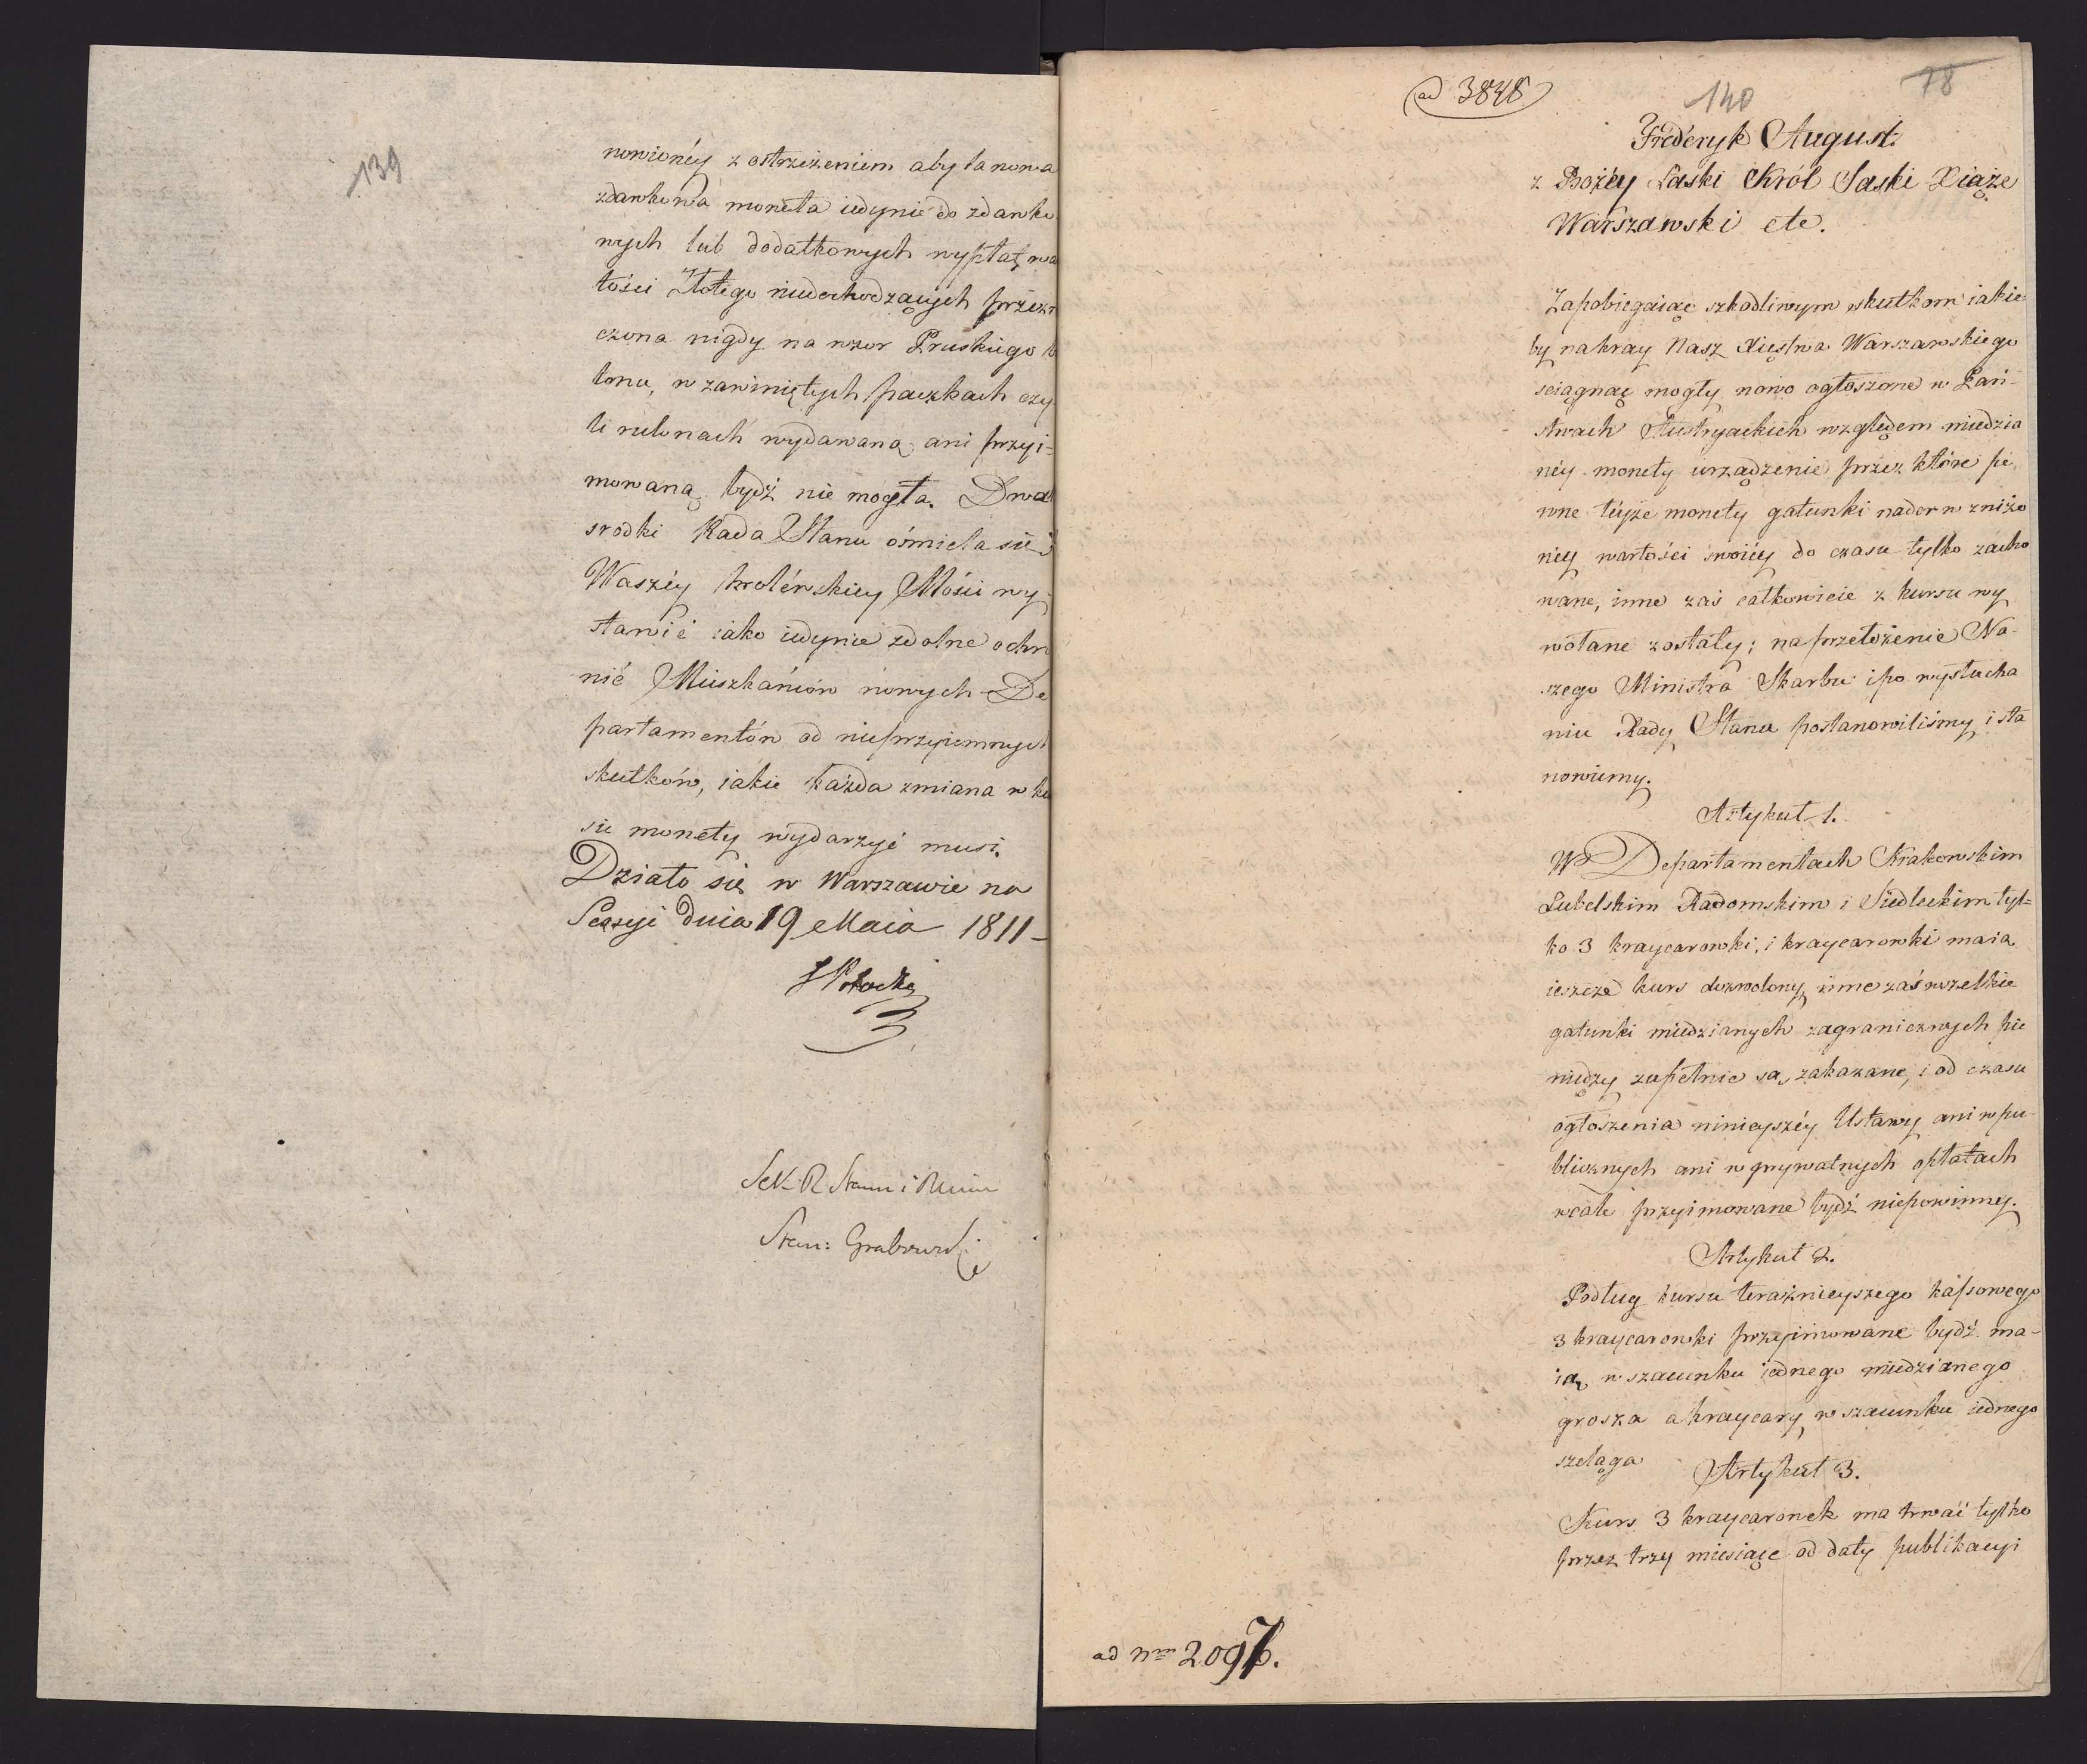 139
nowionéy z ostrzeżeniem aby ta nowa
zdawkowa moneta iedynie do zdawko
wych lub dodatkowych wypłat, wa
tości Złotego niedochodzących przezn
czona nigdy na wzor Pruskiego
tonu, w zawiniętych paczkach czy
li rulonach wydawaną, ani przyi-
mowaną, bydź nie mogła. Dwa
srodki Rada Stanu ośmiela się
Waszéy króléwskiey Mości wy
stawić iako iedynie zdolne ochro
nić Mieszkańców nowych De
partamentów od nieprzyiemnych
skutków, iakie każda zmiana w ku
sie monety wydarzyć musi.
Działo się w Warszawie na
Sessyi dnia 19 Maia 1811 -
SPotocki
Sek. R Stanu i
Stan: Grabowski
ad 3848
140
78
Frederyk August.
z Bożéy Łaski Król Saski Xiąże
Warszawski etc.
Zapobiegaiąc szkodliwym skutkom iakie-
by na kray Nasz Xięstwa Warszawskiego
sciągnąć mogły nowo ogłoszone w Pań-
stwach Austryackich względem miedzia
néy monety urządzenie przez które pe
wne téyże monety gatunki nader w zniżo
néy wartości swoiéy do czasu tylko zacho
wane, inne zaś całkowicie z kursu wy
wołane zostały; na przełożenie Na-
szego Ministra Skarbu i po wysłucha
niu Rady Stanu postanowiliśmy i sta
nowiemy.
Artykuł 1.
W Departamentach Krakowskim
Lubelskim Radomskim i Siedleckim tyl=
ko 3 kraycarowki, i kraycarowki maia
ieszcze kurs dozwolony, inne zaś wszelkie
gatunki miedzianych zagranicznych pie
niędzy zupełnie są, zakazane, i od czasu
ogłoszenia ninieyszéy Ustawy ani w pu-
blicznych ani w prywatnych opłatach
wcale przyimowane bydź niepowinny.
Artykuł 2.
Podług kursu teraźnieyszego kassowego
3 kraycarowki przyimowane bydź ma-
ią, w szacunku iednego miedzianego
grosza a kraycary w szacunku iednego
szeląga
Artykuł 3.
Kurs 3 kraycarowek ma trwać tylko
przez trzy miesiące od daty publikacyi
ad Nrm 2097.